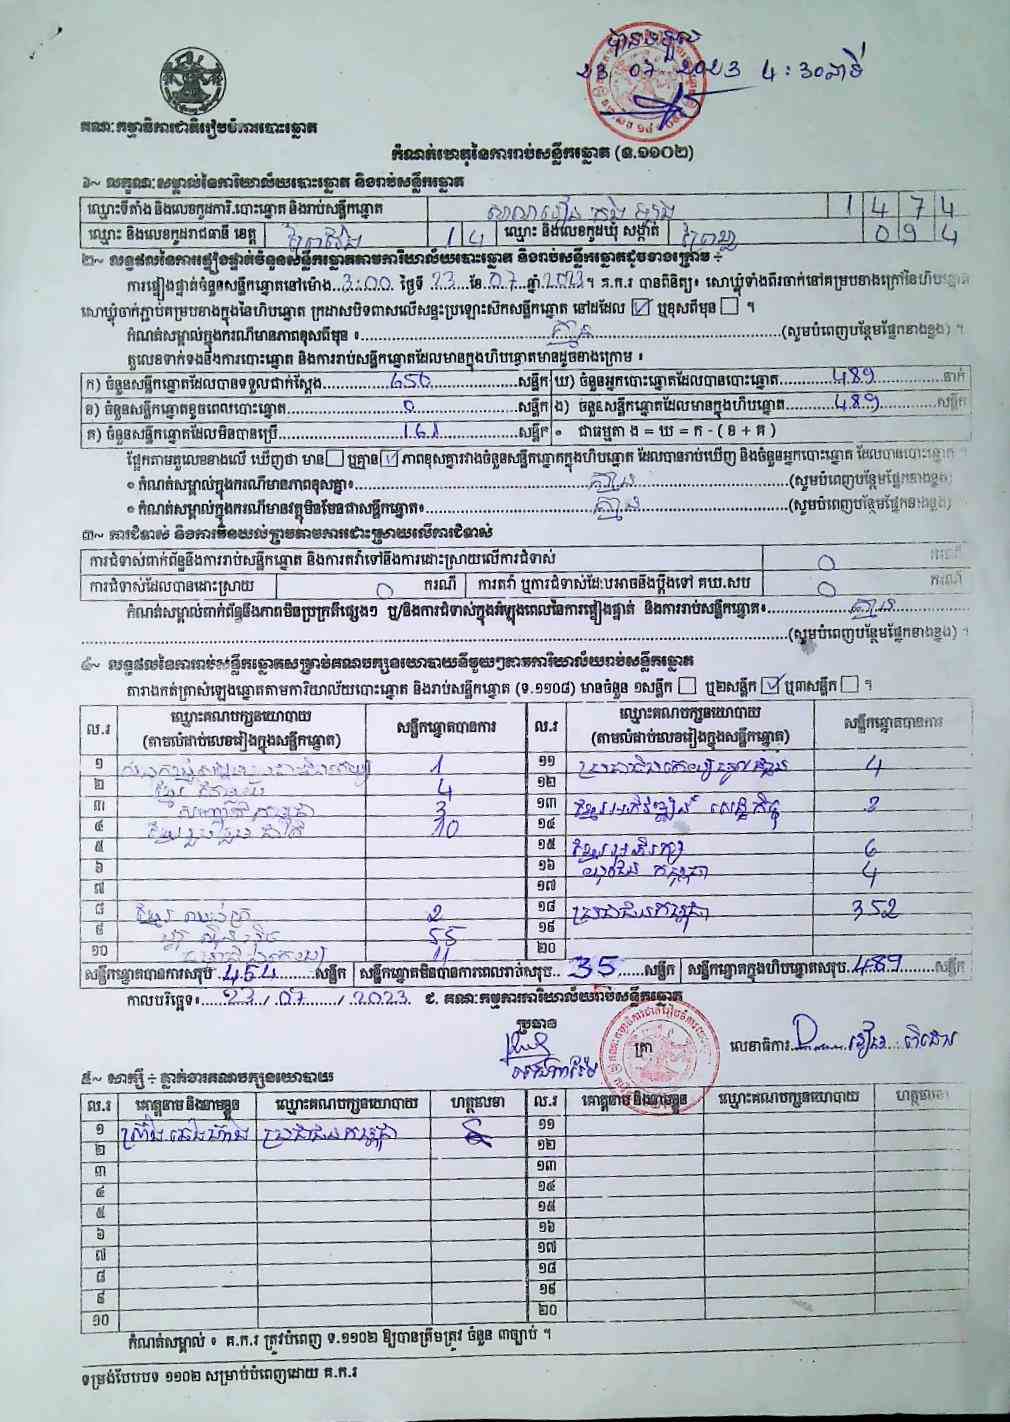 បានទទួល
23 07 2023 4:30នាទី
គណៈកម្មាធិការជាតិរៀបចំការបោះឆ្នោត
កំណត់ហេតុនៃការរាប់សន្លឹកឆ្នោត (ទ.១១០២)
១~ លក្ខណៈសម្គាល់នៃការិយាល័យបោះឆ្នោត និងរាប់សន្លឹកឆ្នោត
ឈ្មោះទីតាំង និងលេខកូដការិ.បោះឆ្នោត និងរាប់សន្លឹកឆ្នោត 1474
ឈ្មោះ និងលេខកូដរាជធានី ខេត្ត ព្រៃវែង 14 ឈ្មោះ និងលេខកូដឃុំ សង្កាត់ 094
២~ លទ្ធផលនៃការផ្ទៀងផ្ទាត់ចំនួនសន្លឹកឆ្នោតតាមការិយាល័យបោះឆ្នោត និងរាប់សន្លឹកឆ្នោតដូចខាងក្រោម ÷
ការផ្ទៀងផ្ទាត់ចំនួនសន្លឹកឆ្នោតនៅម៉ោង...3:00 ថ្ងៃទី 23 ខែ.07 ឆ្នាំ.2023។ គ.ក.រ បានពិនិត្យ៖ សោឃ្លុំទាំងពីរចាក់នៅគម្របខាងក្រៅនៃហិបឆ្នោត
សោឃ្លុំចាក់ភ្ជាប់គម្របខាងក្នុងនៃហិបឆ្នោត ក្រដាសបិទពាសលើសន្ទះប្រឡោះស៊កសន្លឹកឆ្នោត នៅដដែល ☑ ឬខុសពីមុន ☐ ។
កំណត់សម្គាល់ក្នុងករណីមានភាពខុសពីមុន ៖ គ្មាន (សូមបំពេញបន្ថែមផ្នែកខាងខ្នង) ។
តួលេខទាក់ទងនឹងការបោះឆ្នោត និងការរាប់សន្លឹកឆ្នោតដែលមានក្នុងហិបឆ្នោតមានដូចខាងក្រោម ៖
ក) ចំនួនសន្លឹកឆ្នោតដែលបានទទួលជាក់ស្តែង 650 សន្លឹក ឃ) ចំនួនអ្នកបោះឆ្នោតដែលបានបោះឆ្នោត 489 នាក់
ខ) ចំនួនសន្លឹកឆ្នោតខូចពេលបោះឆ្នោត 0 សន្លឹក ង) ចំនួនសន្លឹកឆ្នោតដែលមានក្នុងហិបឆ្នោត 489 សន្លឹក
គ) ចំនួនសន្លឹកឆ្នោតដែលមិនបានប្រើ 161 សន្លឹក ● ជាធម្មតា ង = ឃ = ក - ( ខ + គ )
ផ្អែកតាមតួលេខខាងលើ ឃើញថា មាន ☐ ឬគ្មាន ☑ ភាពខុសគ្នារវាងចំនួនសន្លឹកឆ្នោតក្នុងហិបឆ្នោត ដែលបានរាប់ឃើញ និងចំនួនអ្នកបោះឆ្នោត ដែលបានបោះឆ្នោត ។
● កំណត់សម្គាល់ក្នុងករណីមានភាពខុសគ្នា៖ គ្មាន (សូមបំពេញបន្ថែមផ្នែកខាងខ្នង)
● កំណត់សម្គាល់ក្នុងករណីមានវត្ថុមិនមែនជាសន្លឹកឆ្នោត៖ គ្មាន (សូមបំពេញបន្ថែមផ្នែកខាងខ្នង)
៣~ ការជំទាស់ និងការមិនយល់ព្រមតាមការដោះស្រាយលើការជំទាស់
ការជំទាស់ពាក់ព័ន្ធនឹងការរាប់សន្លឹកឆ្នោត និងការតវ៉ាទៅនឹងការដោះស្រាយលើការជំទាស់ 0 ករណី
ការជំទាស់ដែលបានដោះស្រាយ 0 ករណី ការតវ៉ា ឬការជំទាស់ដែលអាចនឹងប្តឹងទៅ គឃ.សប 0 ករណី
កំណត់សម្គាល់ពាក់ព័ន្ធនឹងភាពមិនប្រក្រតីផ្សេងៗ ឬ/និងការជំទាស់ក្នុងអំឡុងពេលនៃការផ្ទៀងផ្ទាត់ និងការរាប់សន្លឹកឆ្នោត៖ គ្មាន
(សូមបំពេញបន្ថែមផ្នែកខាងខ្នង) ។
៤~ លទ្ធផលនៃការរាប់សន្លឹកឆ្នោតសម្រាប់គណបក្សនយោបាយនីមួយៗតាមការិយាល័យរាប់សន្លឹកឆ្នោត
តារាងកត់ត្រាសំឡេងឆ្នោតតាមការិយាល័យបោះឆ្នោត និងរាប់សន្លឹកឆ្នោត (ទ.១១០៨) មានចំនួន ១សន្លឹក ☐ ឬ២សន្លឹក ☑ ឬ៣សន្លឹក ☐ ។
ល.រ ឈ្មោះគណបក្សនយោបាយ (តាមលំដាប់លេខរៀងក្នុងសន្លឹកឆ្នោត) សន្លឹកឆ្នោតបានការ ល.រ ឈ្មោះគណបក្សនយោបាយ (តាមលំដាប់លេខរៀងក្នុងសន្លឹកឆ្នោត) សន្លឹកឆ្នោតបានការ
១ 1 ១១ 4
២ 4 ១២
៣ 3 ១៣ ខ្មែរអភិវឌ្ឍន៍ សេដ្ឋកិច្ច 2
៤ ខ្មែររួបរួមជាតិ 10 ១៤
៥ ១៥ ខ្មែរអភិរក្ស 6
៦ ១៦ យុវជន កម្ពុជា 4
៧ ១៧
៨ 2 ១៨ ប្រជាជនកម្ពុជា 352
៩ ហ្វ៊ុនស៊ិនប៉ិច 55 ១៩
១០ 11 ២០
សន្លឹកឆ្នោតបានការសរុប 454 សន្លឹក សន្លឹកឆ្នោតមិនបានការពេលរាប់សរុប 35 សន្លឹក សន្លឹកឆ្នោតក្នុងហិបឆ្នោតសរុប 489 សន្លឹក
កាលបរិច្ឆេទ៖ 23/07/2023 ជ. គណៈកម្មការការិយាល័យរាប់សន្លឹកឆ្នោត
ប្រធាន
ត្រា លេខាធិការ
៥~ សាក្សី ÷ ភ្នាក់ងារគណបក្សនយោបាយ
ល.រ គោត្តនាម និងនាមខ្លួន ឈ្មោះគណបក្សនយោបាយ ហត្ថលេខា ល.រ គោត្តនាម និងនាមខ្លួន ឈ្មោះគណបក្សនយោបាយ ហត្ថលេខា
១ ប្រជាជនកម្ពុជា ១១
២ ១២
៣ ១៣
៤ ១៤
៥ ១៥
៦ ១៦
៧ ១៧
៨ ១៨
៩ ១៩
១០ ២០
កំណត់សម្គាល់ ៖ គ.ក.រ ត្រូវបំពេញ ទ.១១០២ ឱ្យបានត្រឹមត្រូវ ចំនួន ៣ច្បាប់ ។
ទម្រង់បែបបទ ១១០២ សម្រាប់បំពេញដោយ គ.ក.រ